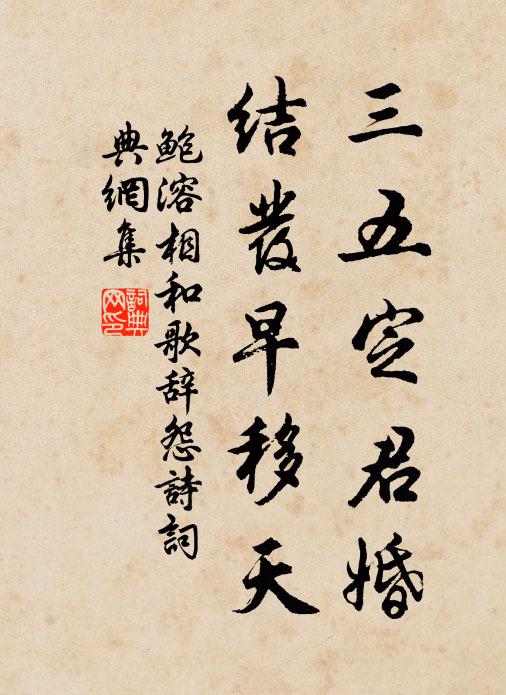 三五定君婚
结發早移天
鲍溶相和歌辞怨詩詞
典網集
詞典网印